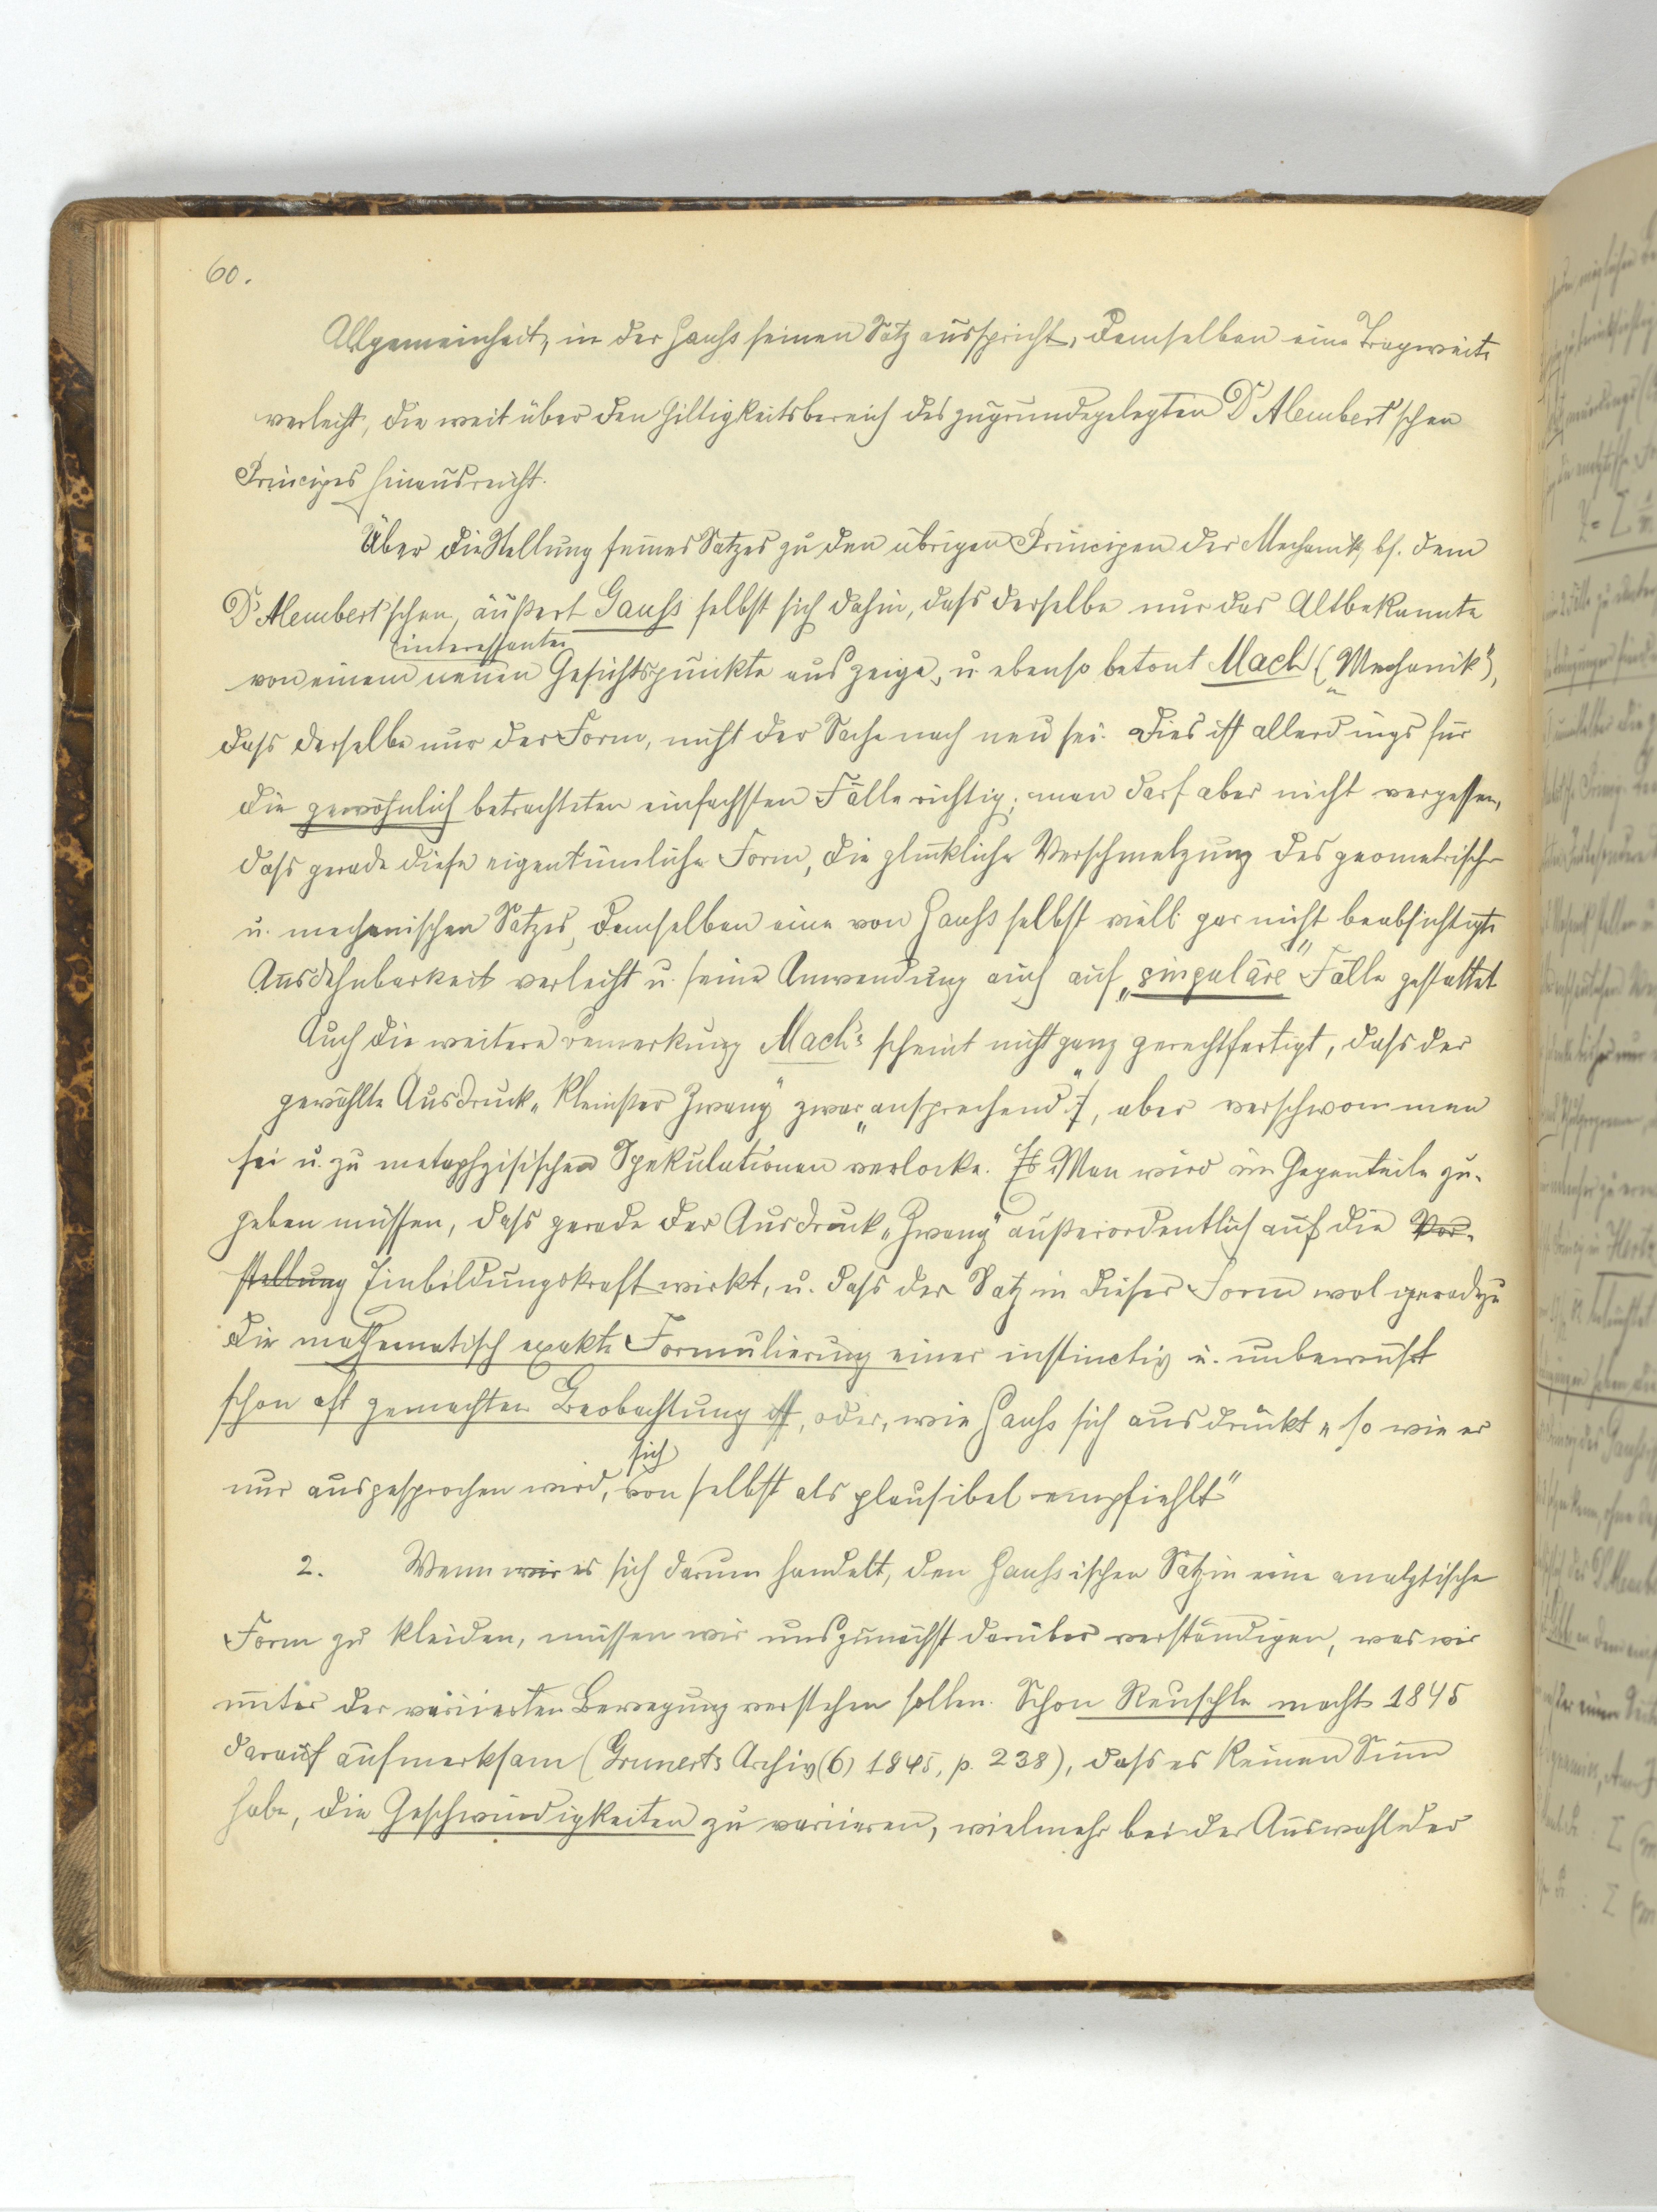 60.
Allgemeinheit, in der Gauß seinen Satz ausspricht, demselben eine Tragweite
verleiht, die weit über den Giltigkeitsbereich des zugrundegelegten D'Alembert'schen
Principes hinausreicht.
Über die Stellung seines Satzes zu den übrigen Principen der Mechanik, bs. dem
D'Alembert'schen, äußert Gauß selbst sich dahin, dass derselbe nur das Altbekannte
interessanten
von einem neuen Gesichtspunkte aus zeige, u. ebenso betont Mach („Mechanik“),
dass derselbe nur der Form, nicht der Sache nach neu sei. Dies ist allerdings für
die gewöhnlich betrachteten einfachsten Fälle richtig; man darf aber nicht vergessen,
dass gerade diese eigentümliche Form, die glückliche Verschmelzung des geometrischen
u. mechanischen Satzes, demselben eine von Gauß selbst viell. gar nicht beabsichtigte
Ausdehnbarkeit verleiht u. seine Anwendung auch auf „singuläre“ Fälle gestattet
Auch die weitere Bemerkung Mach's scheint nicht ganz gerechtfertigt, dass der
gewählte Ausdruck „kleinster Zwang“ zwar „ansprechend“, aber verschwommen
sei u. zu metaphysischen Spekulationen verlocke. Es Man wird im Gegenteile zu-
geben müssen, dass gerade der Ausdruck „Zwang“ außerordentlich auf die Vor-
stellung Einbildungskraft wirkt, u. dass der Satz in dieser Form wol geradezu
die mathematisch exakte Formulierung einer instinctiv u. unbewußt
schon oft gemachten Beobachtung ist, oder, wie Gauß sich ausdrückt „so wie er
sich
nur ausgesprochen wird, von selbst als plausibel empfiehlt“
2. Wenn wir es sich darum handelt, den Gaußischen Satz in eine analytische
Form zu kleiden, müssen wir uns zunächst darüber verständigen, was wir
unter der variierten Bewegung verstehen sollen. Schon Reuschle macht 1845
darauf aufmerksam (Grunerts Archiv (6) 1845, p. 238), dass es keinen Sinn
habe, die Geschwindigkeiten zu variieren, vielmehr bei der Auswahl der